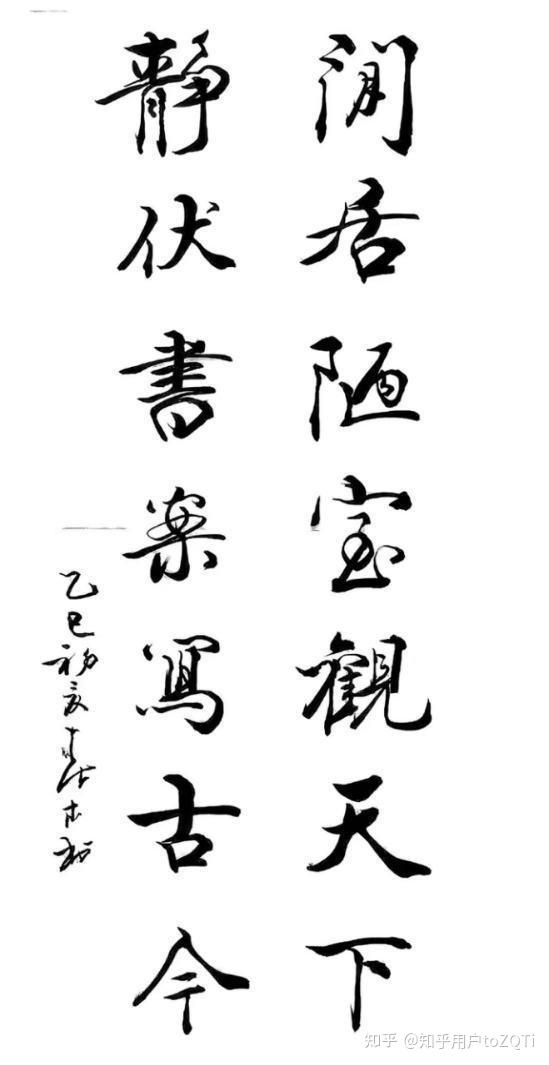 閒居陋室觀天下
靜伏書案寫古今
乙巳初夏
知乎 @知乎用户toZQTi